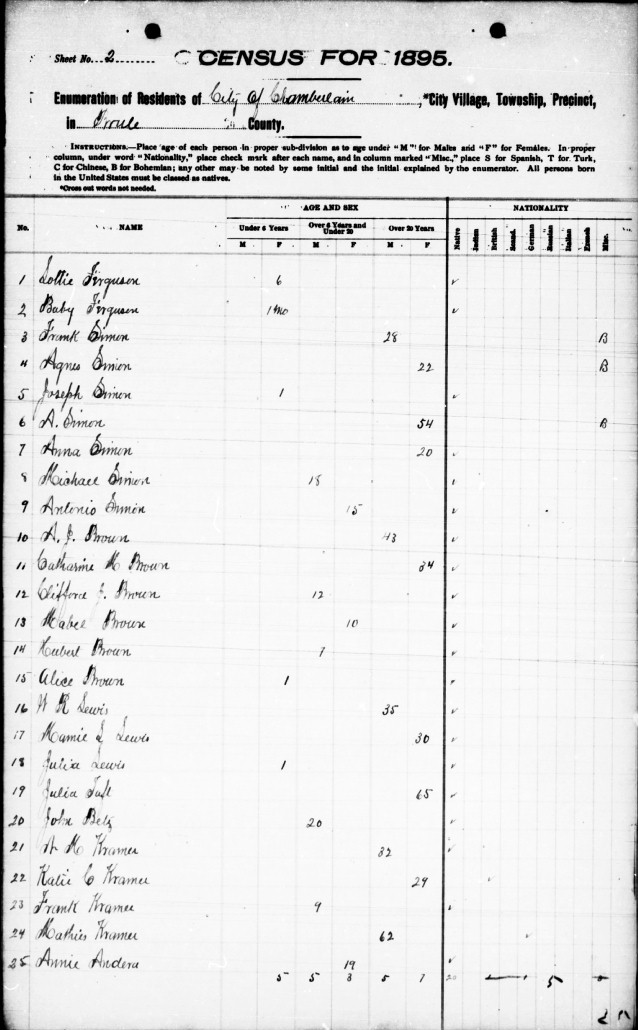 Sheet No. 2
CENSUS FOR 1895.
Enumeration of Residents of City Of Chamberlain, *City Village, Township, Precinct,
in Brule County.
INSTRUCTIONS.—Place age of each person in proper sub-division as to age under "M" for Males and "F" for Females. In proper
column, under word "Nationality," place check mark after each name, and in column marked "Misc.," place S for Spanish, T for Turk,
C for Chinese, B for Bohemian; any other may be noted by some initial and the initial explained by the enumerator. All persons born
in the United States must be classed as natives.
*Cross out words not needed.
AGE AND SEX NATIONALITY
No. NAME Under 6 Years Over 6 Years and Under 20 Over 20 Years Native Indian British Scand. German Russian Italian French Misc.
M F M F M F
1 Lottie Ferguson 6 ✓
2 Baby Ferguson 1 Mo ✓
3 Frank Simon 28 B
4 Agnes Simon 22 B
5 Joseph Simon 1 ✓
6 A. Simon 54 B
7 Anna Simon 20 ✓
8 Michael Simon 18 ✓
9 Antonio Simon 15 ✓
10 A. J. Brown 43 ✓
11 Catharine M Brown 34 ✓
12 Clifford J. Brown 12 ✓
13 Mabel Brown 10 ✓
14 Hubert Brown 7 ✓
15 Alice Brown 1 ✓
16 W R Lewis 35 ✓
17 Mamie L Lewis 30 ✓
18 Julia Lewis 1 ✓
19 Julia Taft 65 ✓
20 John Betz 20 ✓
21 Kramer 32 ✓
22 Katie C Kramer 29 ✓
23 Frank Kramer 9 ✓
24 Mathies Kramer 62 ✓
25 Annie Andera 19 ✓
5 5 3 5 7 20 5